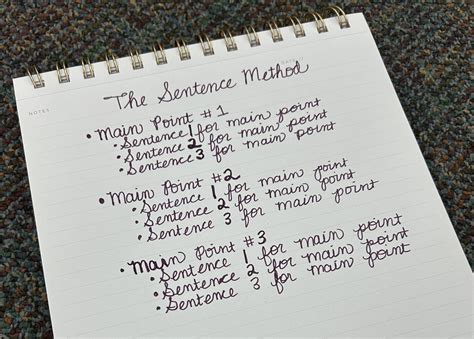 NOTES
DATE
The Sentence Method
• Main Point #1
• Sentence 1 for main point
• Sentence 2 for main point
• Sentence 3 for main point
• Main Point #2
• Sentence 1 for main point
• Sentence 2 for main point
• Sentence 3 for main point
• Main Point #3
• Sentence 1 for main point
• Sentence 2 for main point
• Sentence 3 for main point